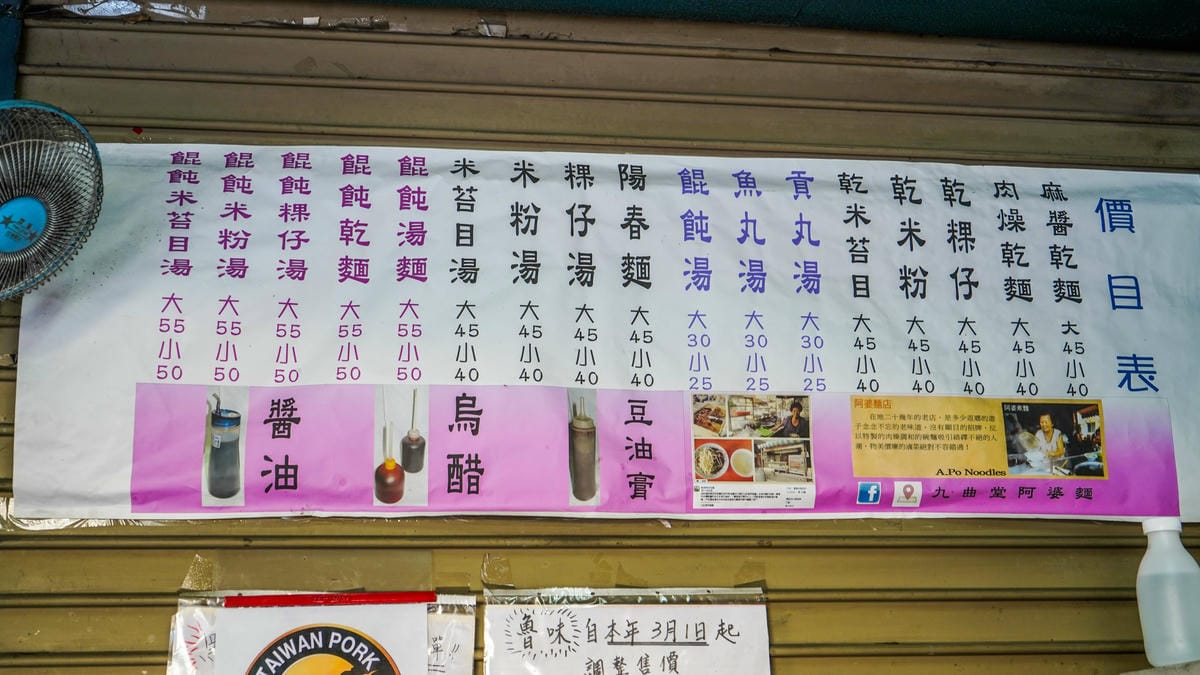 價目表
麻醬乾麵 大45小40
肉燥乾麵 大45小40
乾粿仔 大45小40
乾米粉 大45小40
乾米苔目 大45小40
貢丸湯 大30小25
魚丸湯 大30小25
餛飩湯 大30小25
陽春麵 大45小40
粿仔湯 大45小40
米粉湯 大45小40
米苔目湯 大45小40
餛飩湯麵 大55小50
餛飩乾麵 大55小50
餛飩粿仔湯 大55小50
餛飩米粉湯 大55小50
餛飩米苔目湯 大55小50
醬油
烏醋
豆油膏
阿婆麵店
在地二十幾年的老店，是多少返鄉的遊
子念念不忘的老味道，沒有顯目的招牌，反
以特製的肉燥調和的碗麵吸引絡繹不絕的人
潮，物美價廉的滷菜絕對不容錯過！
A.Po Noodles
阿婆煮麵
九曲堂阿婆麵
TAIWAN PORK
魯味自本年3月1日起
調整售價